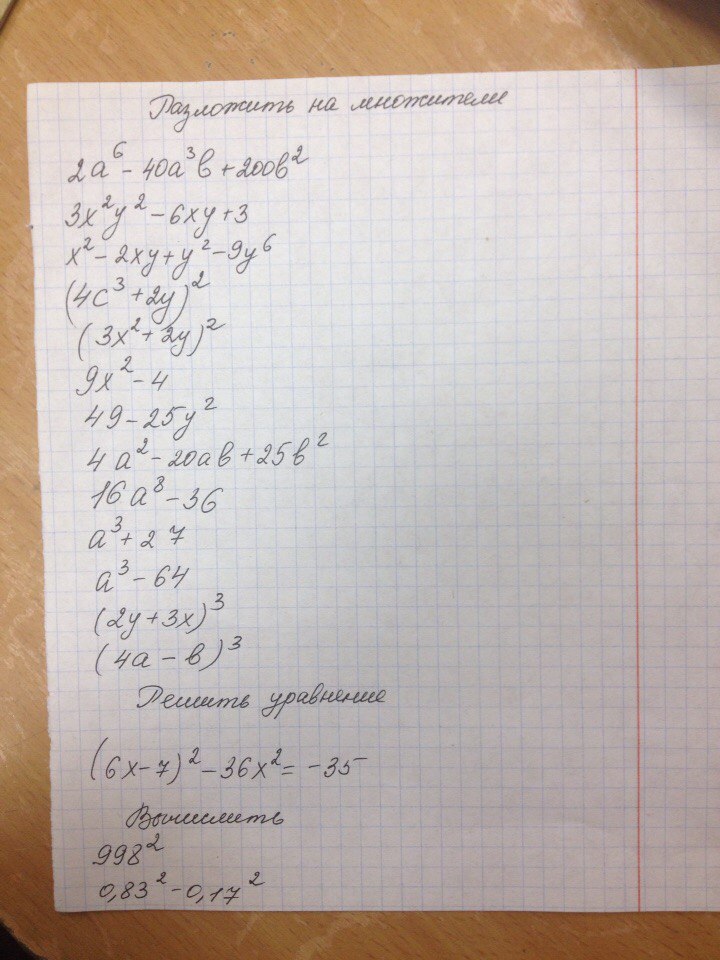 Разложить на множители
2a⁶ - 40a³b + 200b²
3x²y² - 6xy + 3
x² - 2xy + y² - 9y⁶
(4c³ + 2y)²
(3x² + 2y)²
9x² - 4
49 - 25y²
4a² - 20ab + 25b²
16a⁸ - 36
a³ + 27
a³ - 64
(2y + 3x)³
(4a - b)³
Решить уравнение
(6x - 7)² - 36x² = -35
Вычислить
998²
0,83² - 0,17²